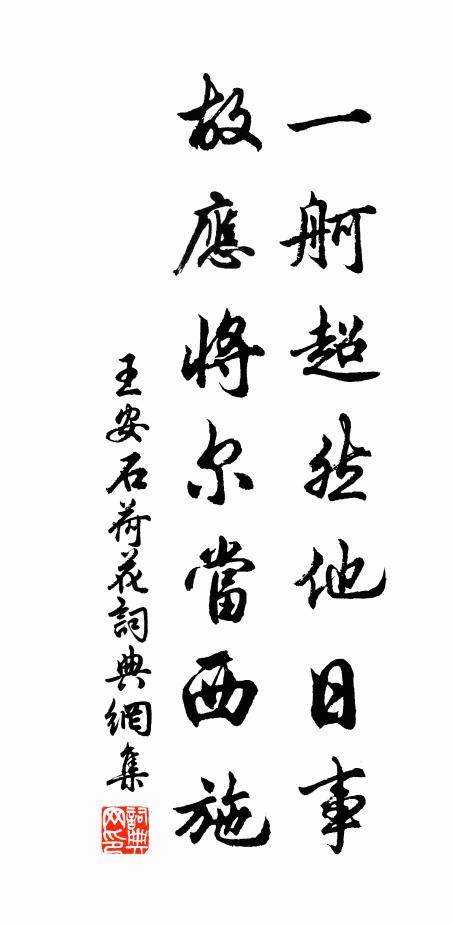 一舸超然他日事
故應將尔當西施
王安石荷花詞典網集
詞典
网印